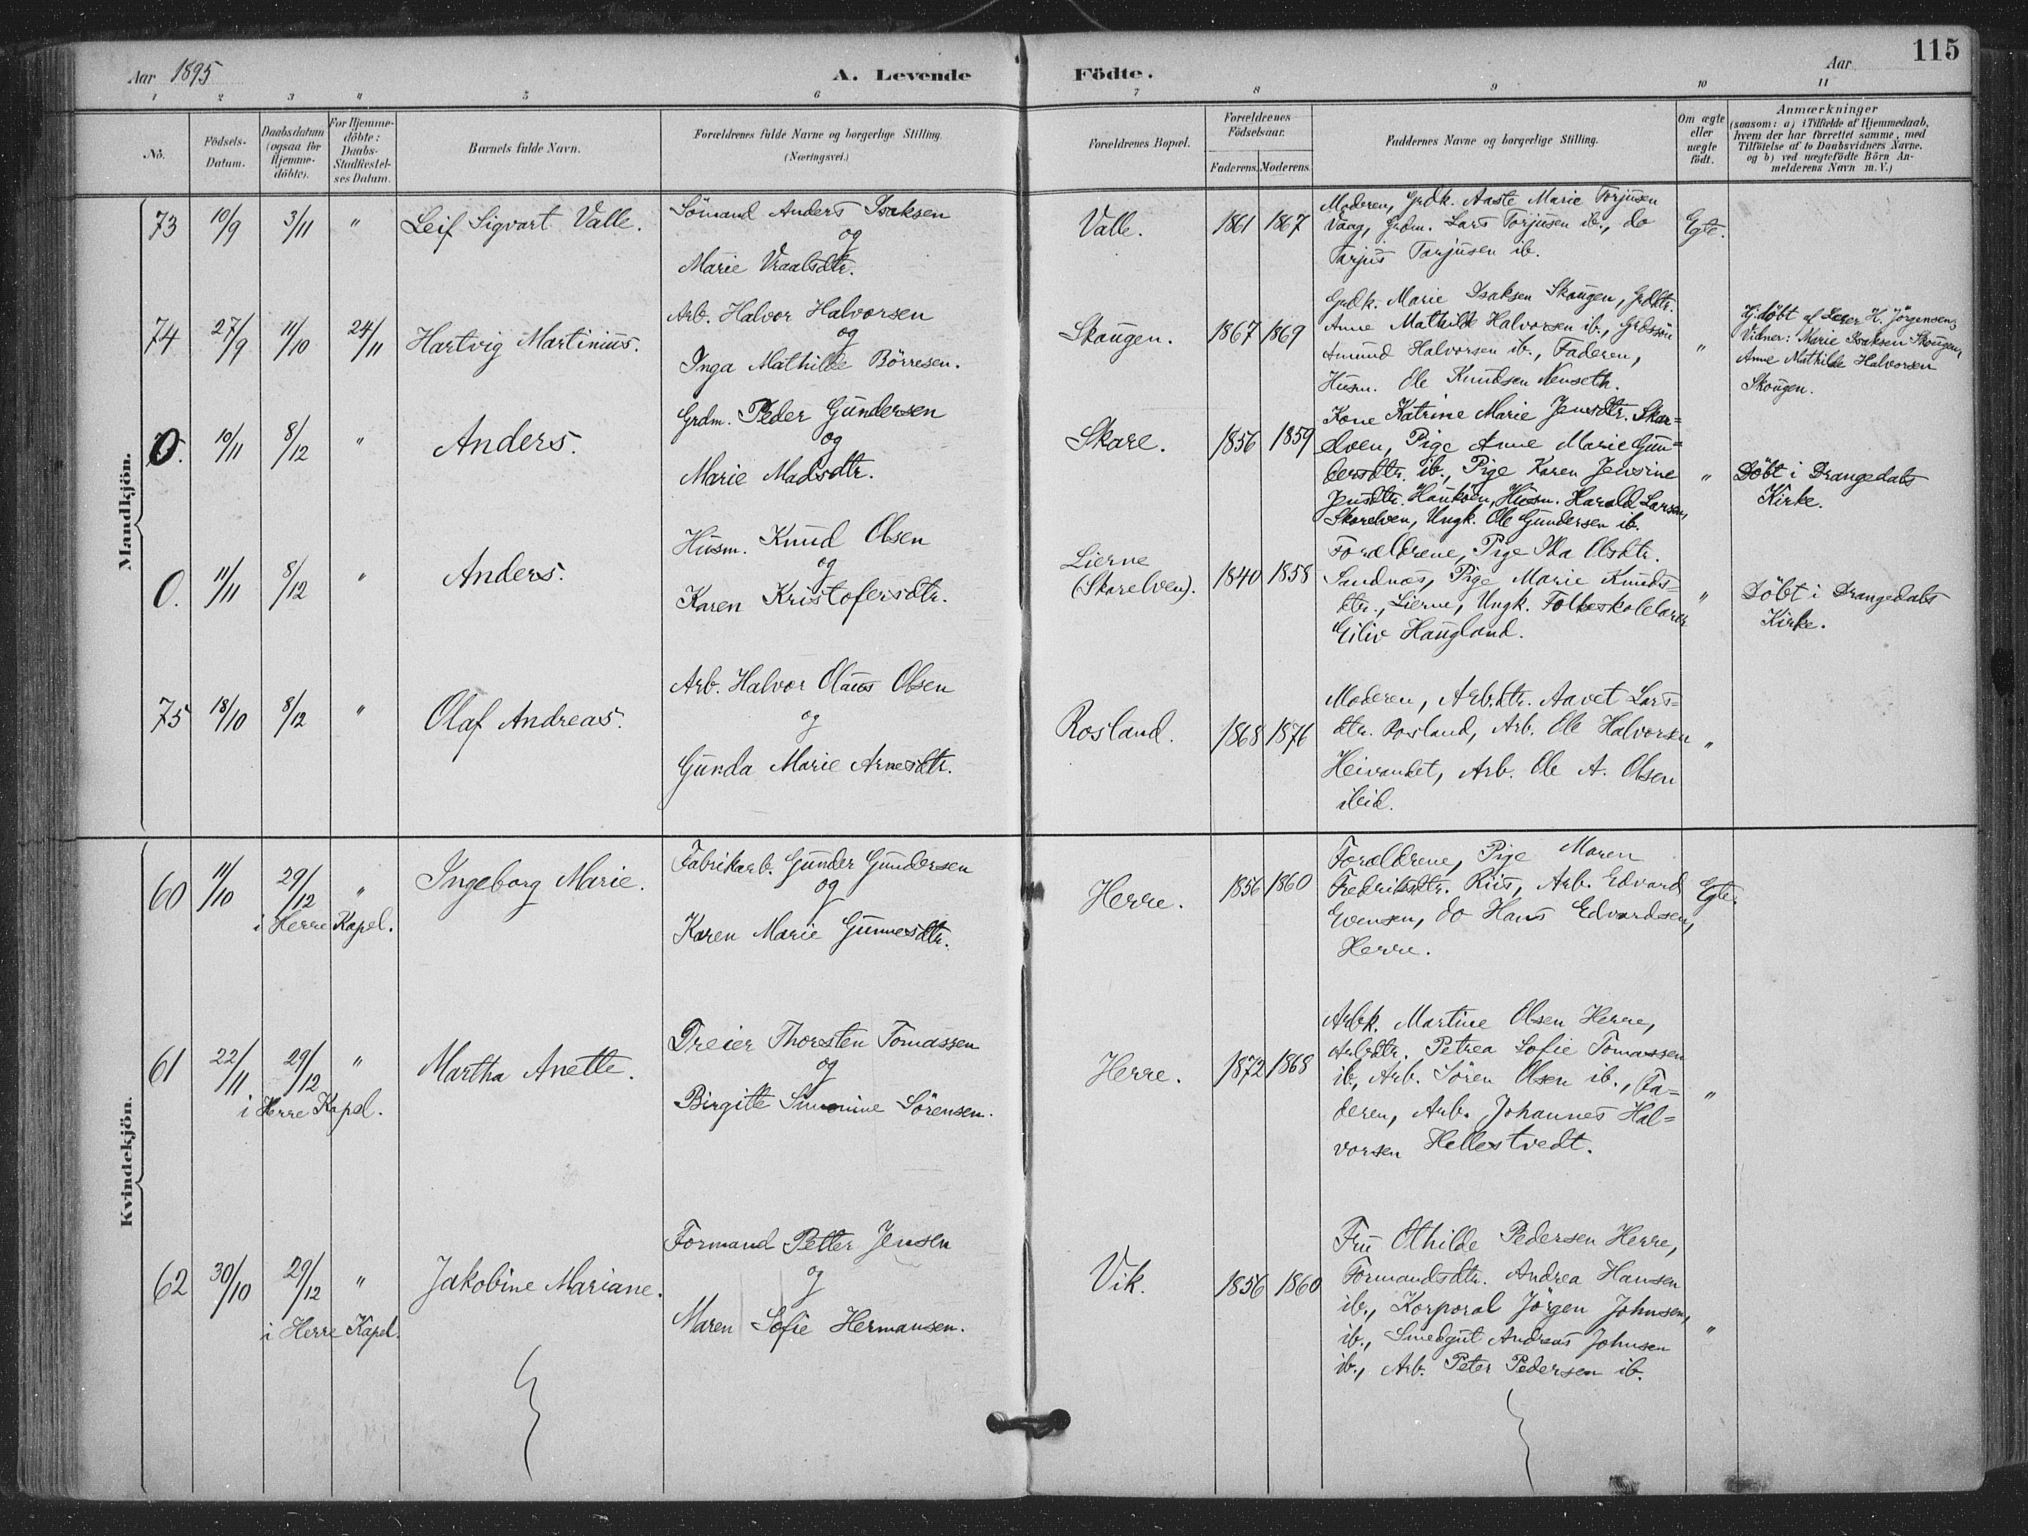 Aar 1895
A. Levende
Födte.
Aar
115
1 2 3 " 5 6 7 8 9 10 11
No.
Födsels-
Datum.
Daabsdatum
(ogsaa for
Hjemme-
döbte).
For Hjemme-
döbte:
Daabs-
Stadfæstel-
ses Datum.
Barnets fulde Navn.
Forældrenes fulde Navne og borgerlige Stilling.
(Næringsvei.)
Forældrenes Bopæl.
Forældrenes
Födselsaar.
Faderens.
Moderens.
Faddernes Navne og borgerlige Stilling.
Om ægte
eller
uægte
födt.
Anmærkninger
(saasom: a) i Tilfælde af Hjemmedaab,
hvem der har forrettet samme, med
Tilföielse af to Daabsvidners Navne.
og b) ved uægtefödte Börn An-
melderens Navn m. V.)
Mandkjön.
73 10/9 3/11 " Leif Sigvart Valle.
Sömand Anders Isaksen
og
Marie Vraalsdtr.
Valle. 1861 1867
Moderen, Grdk. Aaste Marie Torjusen
Vaag, Grdm. Lars Torjusen ib., do
Tarjus Tarjusen ib.
Egte.
74 27/9 11/10 24/11 Hartvig Martinius.
Arb. Halvor Halvorsen
og
Inga Mathilde Börresen.
Skougen. 1867 1869
Grdk. Marie Isaksen Skougen, Grdtr.
Anne Mathilde Halvorsen ib., Grdssön
Amund Halvorsen ib., Faderen,
Husm. Ole Knudsen Nenseth.
"
Hj.döbt af Lærer H. Jörgensen,
Vidner: Marie Isaksen Skougen,
Anne Mathilde Halvorsen
Skougen.
0. 10/11 8/12 " Anders.
Grdm. Peder Gundersen
og
Marie Madsdtr.
Skare. 1856 1859
Kone Katrine Marie Jensdtr. Skar-
elven, Pige Anne Marie Gun-
dersdtr. ib., Pige Karen Jensine
Jensdtr. Haukven, Husm. Harald Larsen,
Skarelven, Ungk. Ole Gundersen ib.
"
Döbt i Drangedals
Kirke.
0. 11/11 8/12 " Anders.
Husm. Knud Olsen
og
Karen Kristofersdtr.
Lierne
(Skarelven). 1840 1858
Forældrene, Pige Ida Olsdtr.
Sandnæs, Pige Marie Knuds-
dtr., Lierne, Ungk. Folkeskolelærer
Eiliv Haugland.
"
Döbt i Drangedals
Kirke.
75 18/10 8/12 " Olaf Andreas.
Arb. Halvor Olaus Olsen
og
Gunda Marie Arnesdtr.
Rosland. 1868 1876
Moderen, Arb.dtr. Aavet Lars-
dtr. Rosland, Arb. Ole Halvorsen
Heivandet, Arb. Ole A. Olsen
ibid.
"
Kvindekjön.
60 11/10 29/12 " Ingeborg Marie.
i Herre Kapel.
Fabrikarb. Gunder Gundersen
og
Karen Marie Gunnesdtr.
Herre. 1856 1860
Forældrene, Pige Maren
Fredriksdtr. Riis, Arb. Edvard
Evensen, do Hans Edvardsen,
Herre.
Egte.
61 22/11 29/12 " Martha Anette.
i Herre Kapel.
Dreier Thorsten Tomassen
og
Birgitte Simonine Sörensen.
Herre. 1872 1868
Arbk. Martine Olsen Herre,
Arbrdtr. Petrea Sofie Tomassen
ib, Arb. Sören Olsen ib., Fa-
deren, Arb. Johannes Hal-
vorsen Hellestvedt.
"
62 30/10 29/12 " Jakobine Mariane.
i Herre Kapel.
Formand Petter Jensen
og
Maren Sofie Hermansen.
Vik. 1856 1860
Fru Othilde Pedersen Herre,
Formandsdtr. Andrea Hansen
ib., Korporal Jörgen Johnsen,
ib., Smedgut Andreas Johnsen
ib., Arb. Peter Pedersen ib.
"